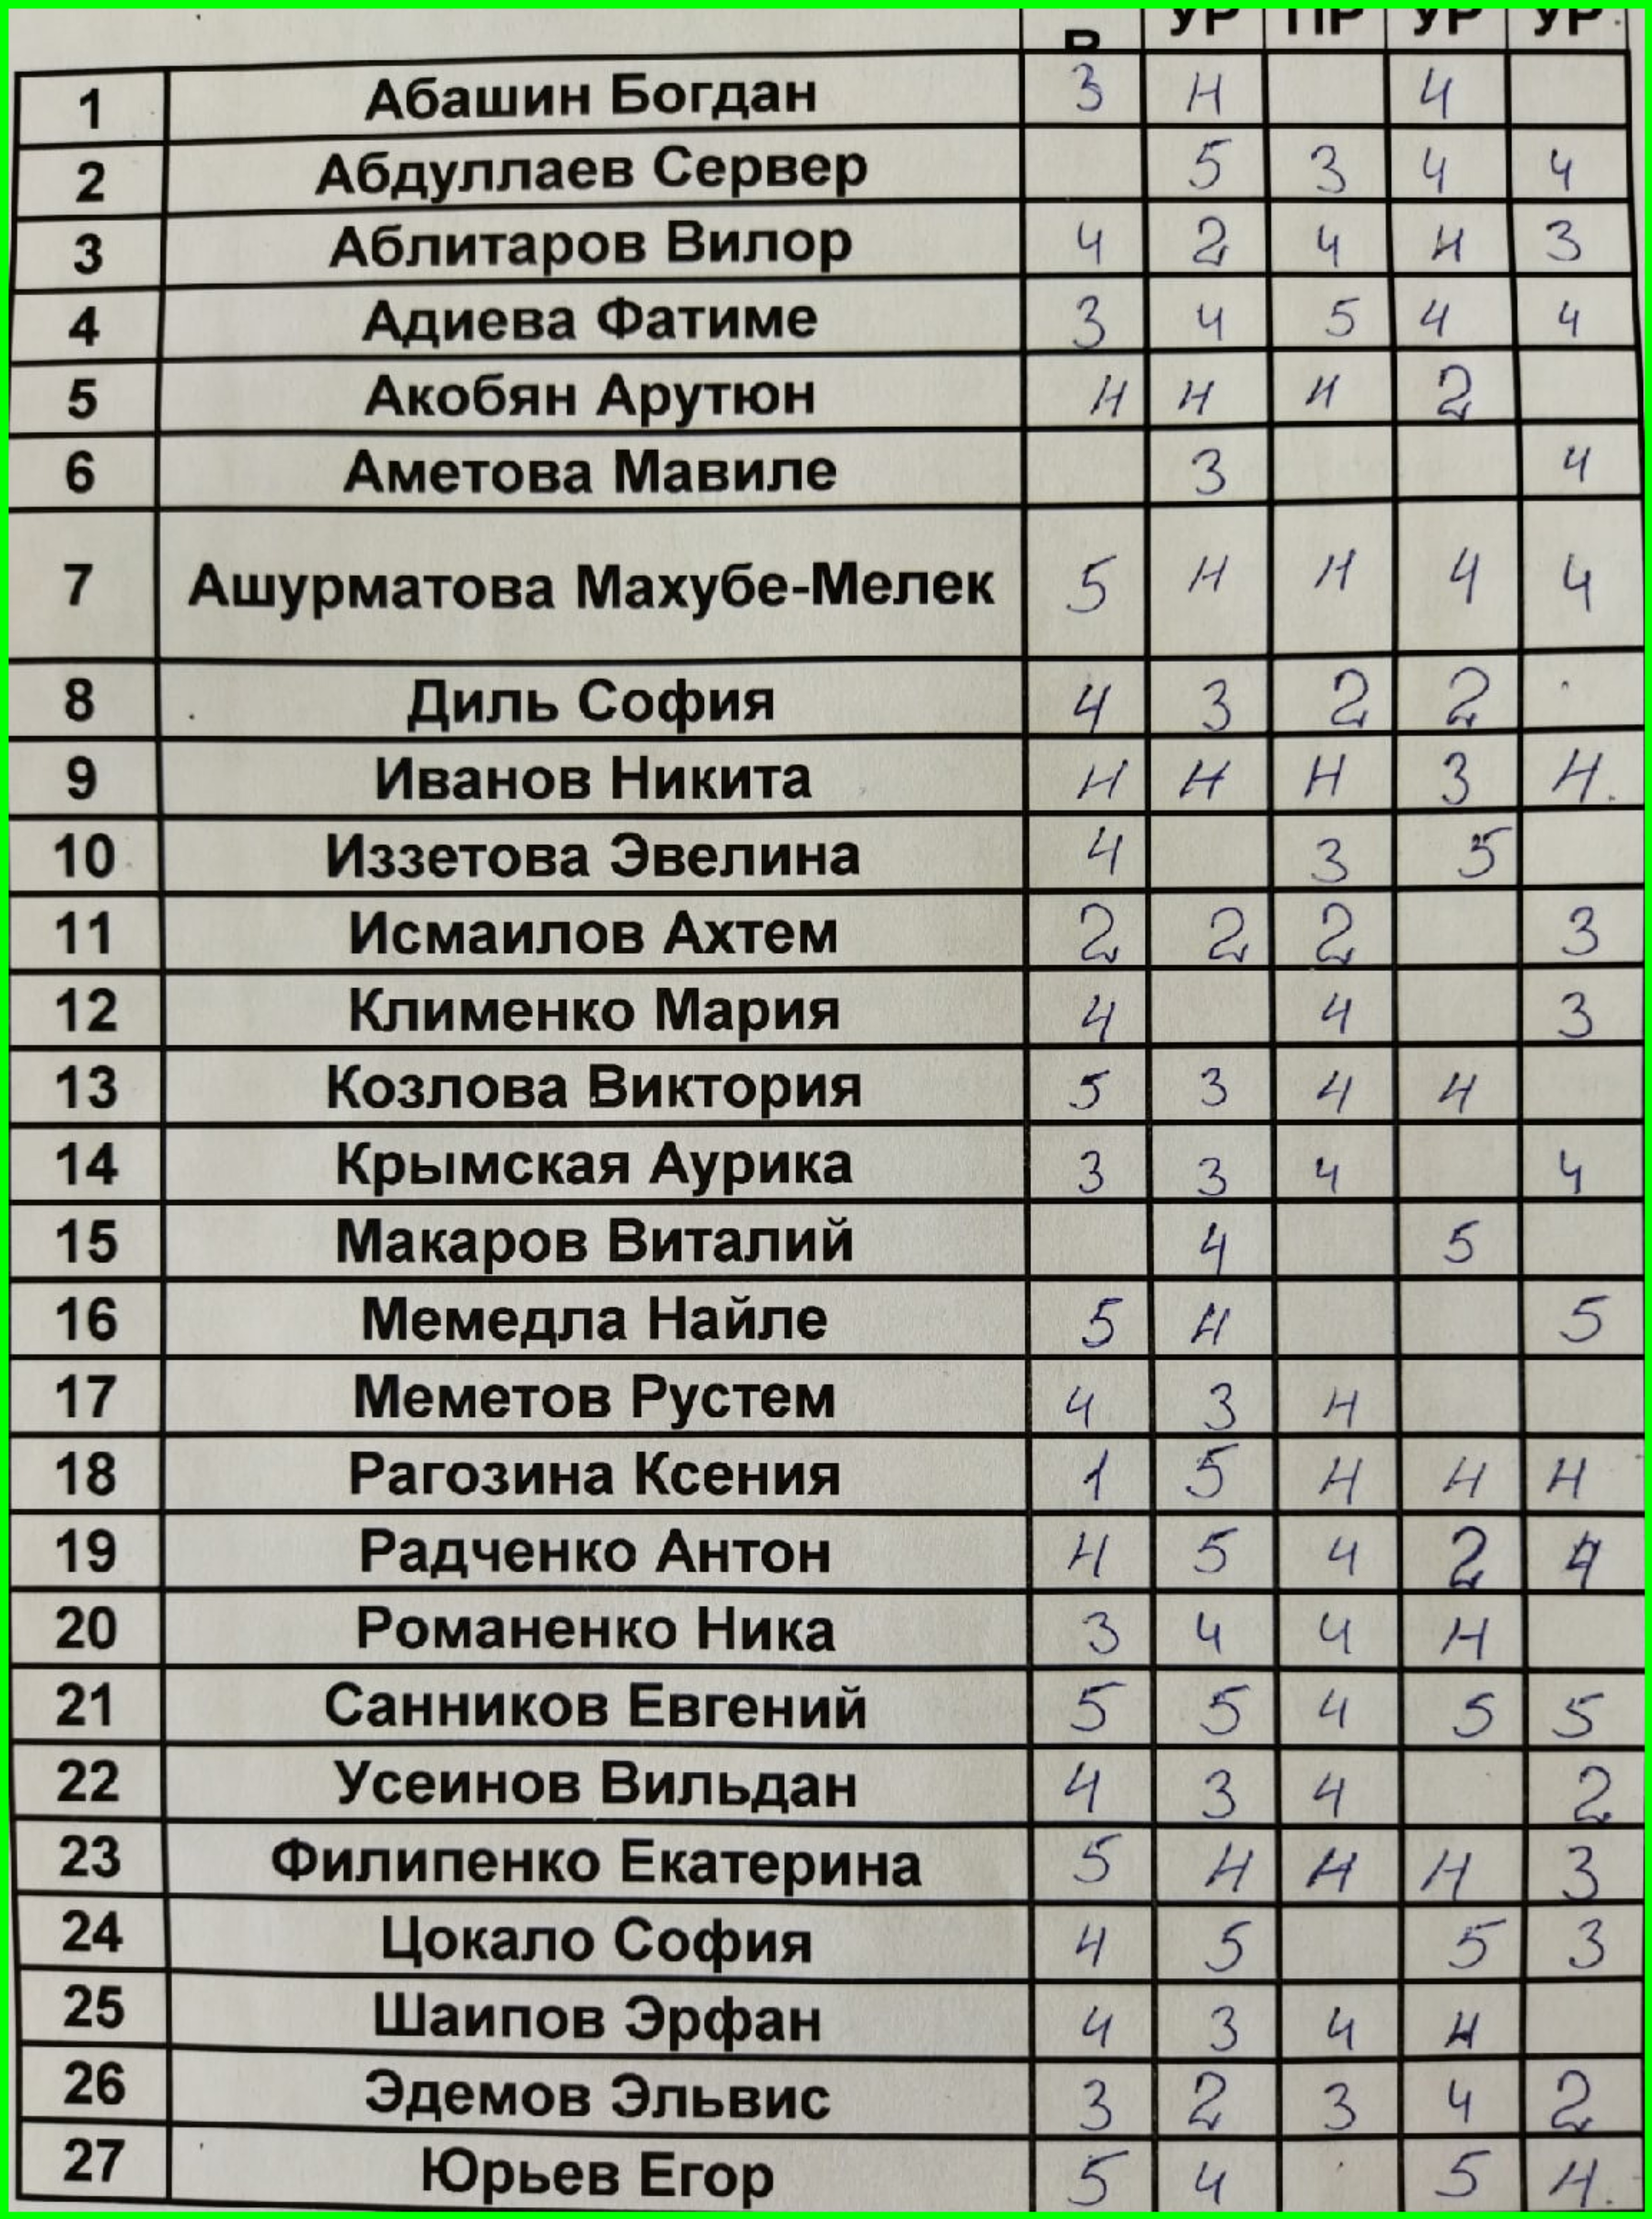 В УР ПР УР УР
1 Абашин Богдан 3 Н 4
2 Абдуллаев Сервер 5 3 4 4
3 Аблитаров Вилор 4 2 4 Н 3
4 Адиева Фатиме 3 4 5 4 4
5 Акобян Арутюн Н Н Н 2
6 Аметова Мавиле 3 4
7 Ашурматова Махубе-Мелек 5 Н Н 4 4
8 Диль София 4 3 2 2
9 Иванов Никита Н Н Н 3 Н
10 Иззетова Эвелина 4 3 5
11 Исмаилов Ахтем 2 2 2 3
12 Клименко Мария 4 4 3
13 Козлова Виктория 5 3 4 4
14 Крымская Аурика 3 3 4 4
15 Макаров Виталий 4 5
16 Мемедла Найле 5 4 5
17 Меметов Рустем 4 3 Н
18 Рагозина Ксения 1 5 Н Н Н
19 Радченко Антон Н 5 4 2 4
20 Романенко Ника 3 4 4 Н
21 Санников Евгений 5 5 4 5 5
22 Усеинов Вильдан 4 3 4 2
23 Филипенко Екатерина 5 Н Н Н 3
24 Цокало София 4 5 5 3
25 Шаипов Эрфан 4 3 4 4
26 Эдемов Эльвис 3 2 3 4 2
27 Юрьев Егор 5 4 5 Н